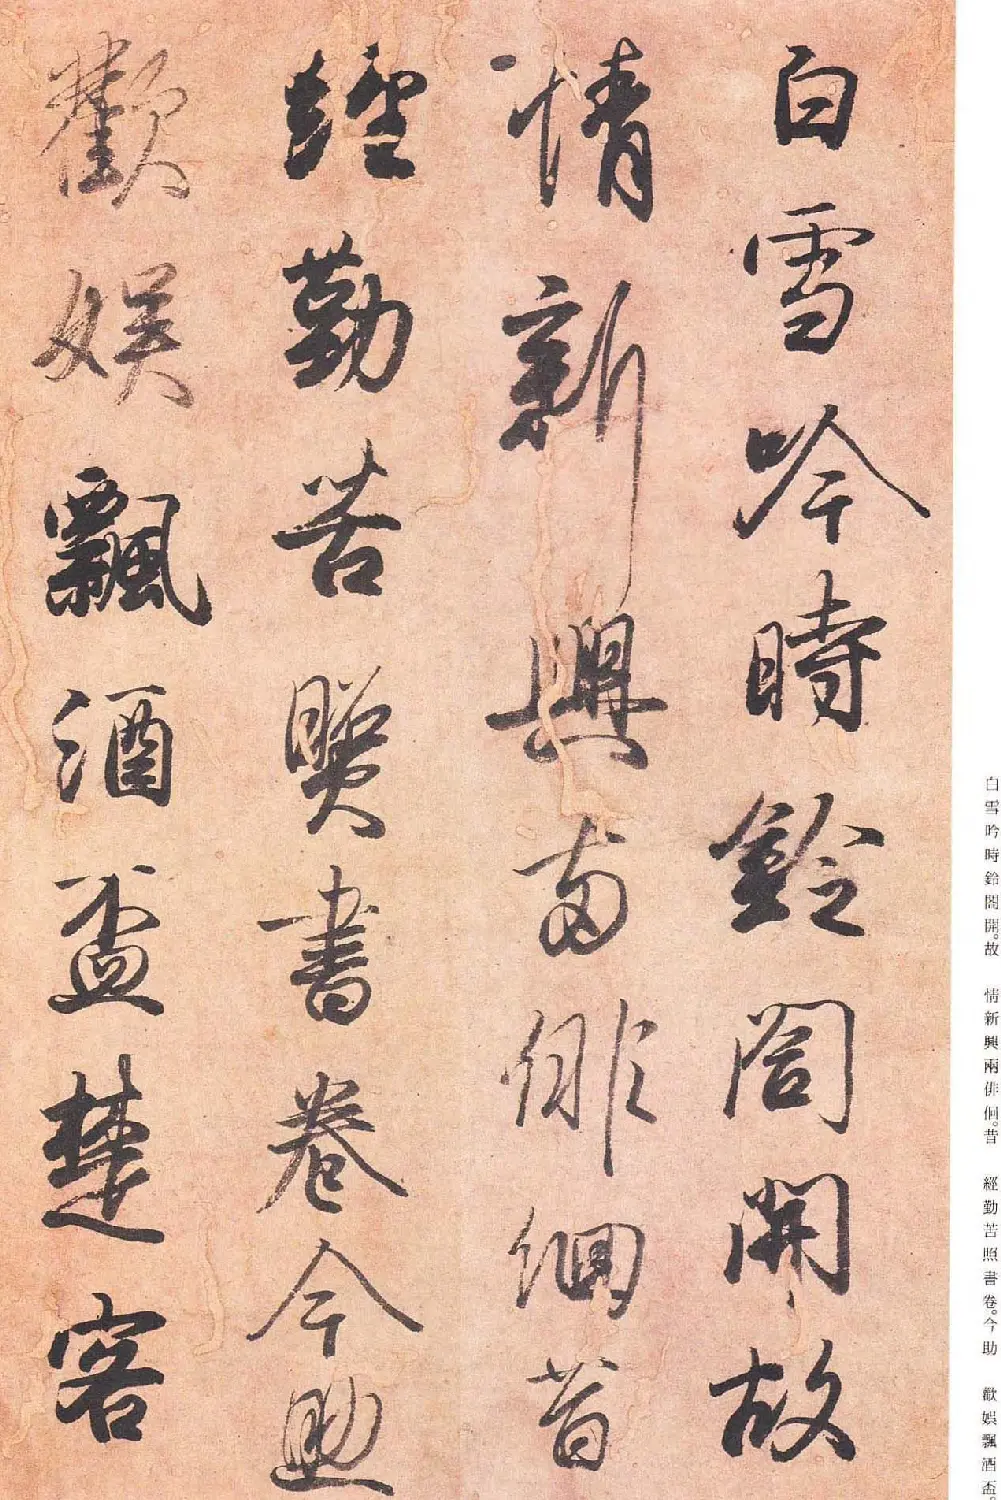 白雪吟時鈴閣開故
情新興兩俳佪昔
經勤苦照書卷今助
歡娛飄酒盃楚客
白雪吟時鈴閣開。故 情新興兩俳佪。昔 經勤苦照書卷。今助 歡娛飄酒盃。